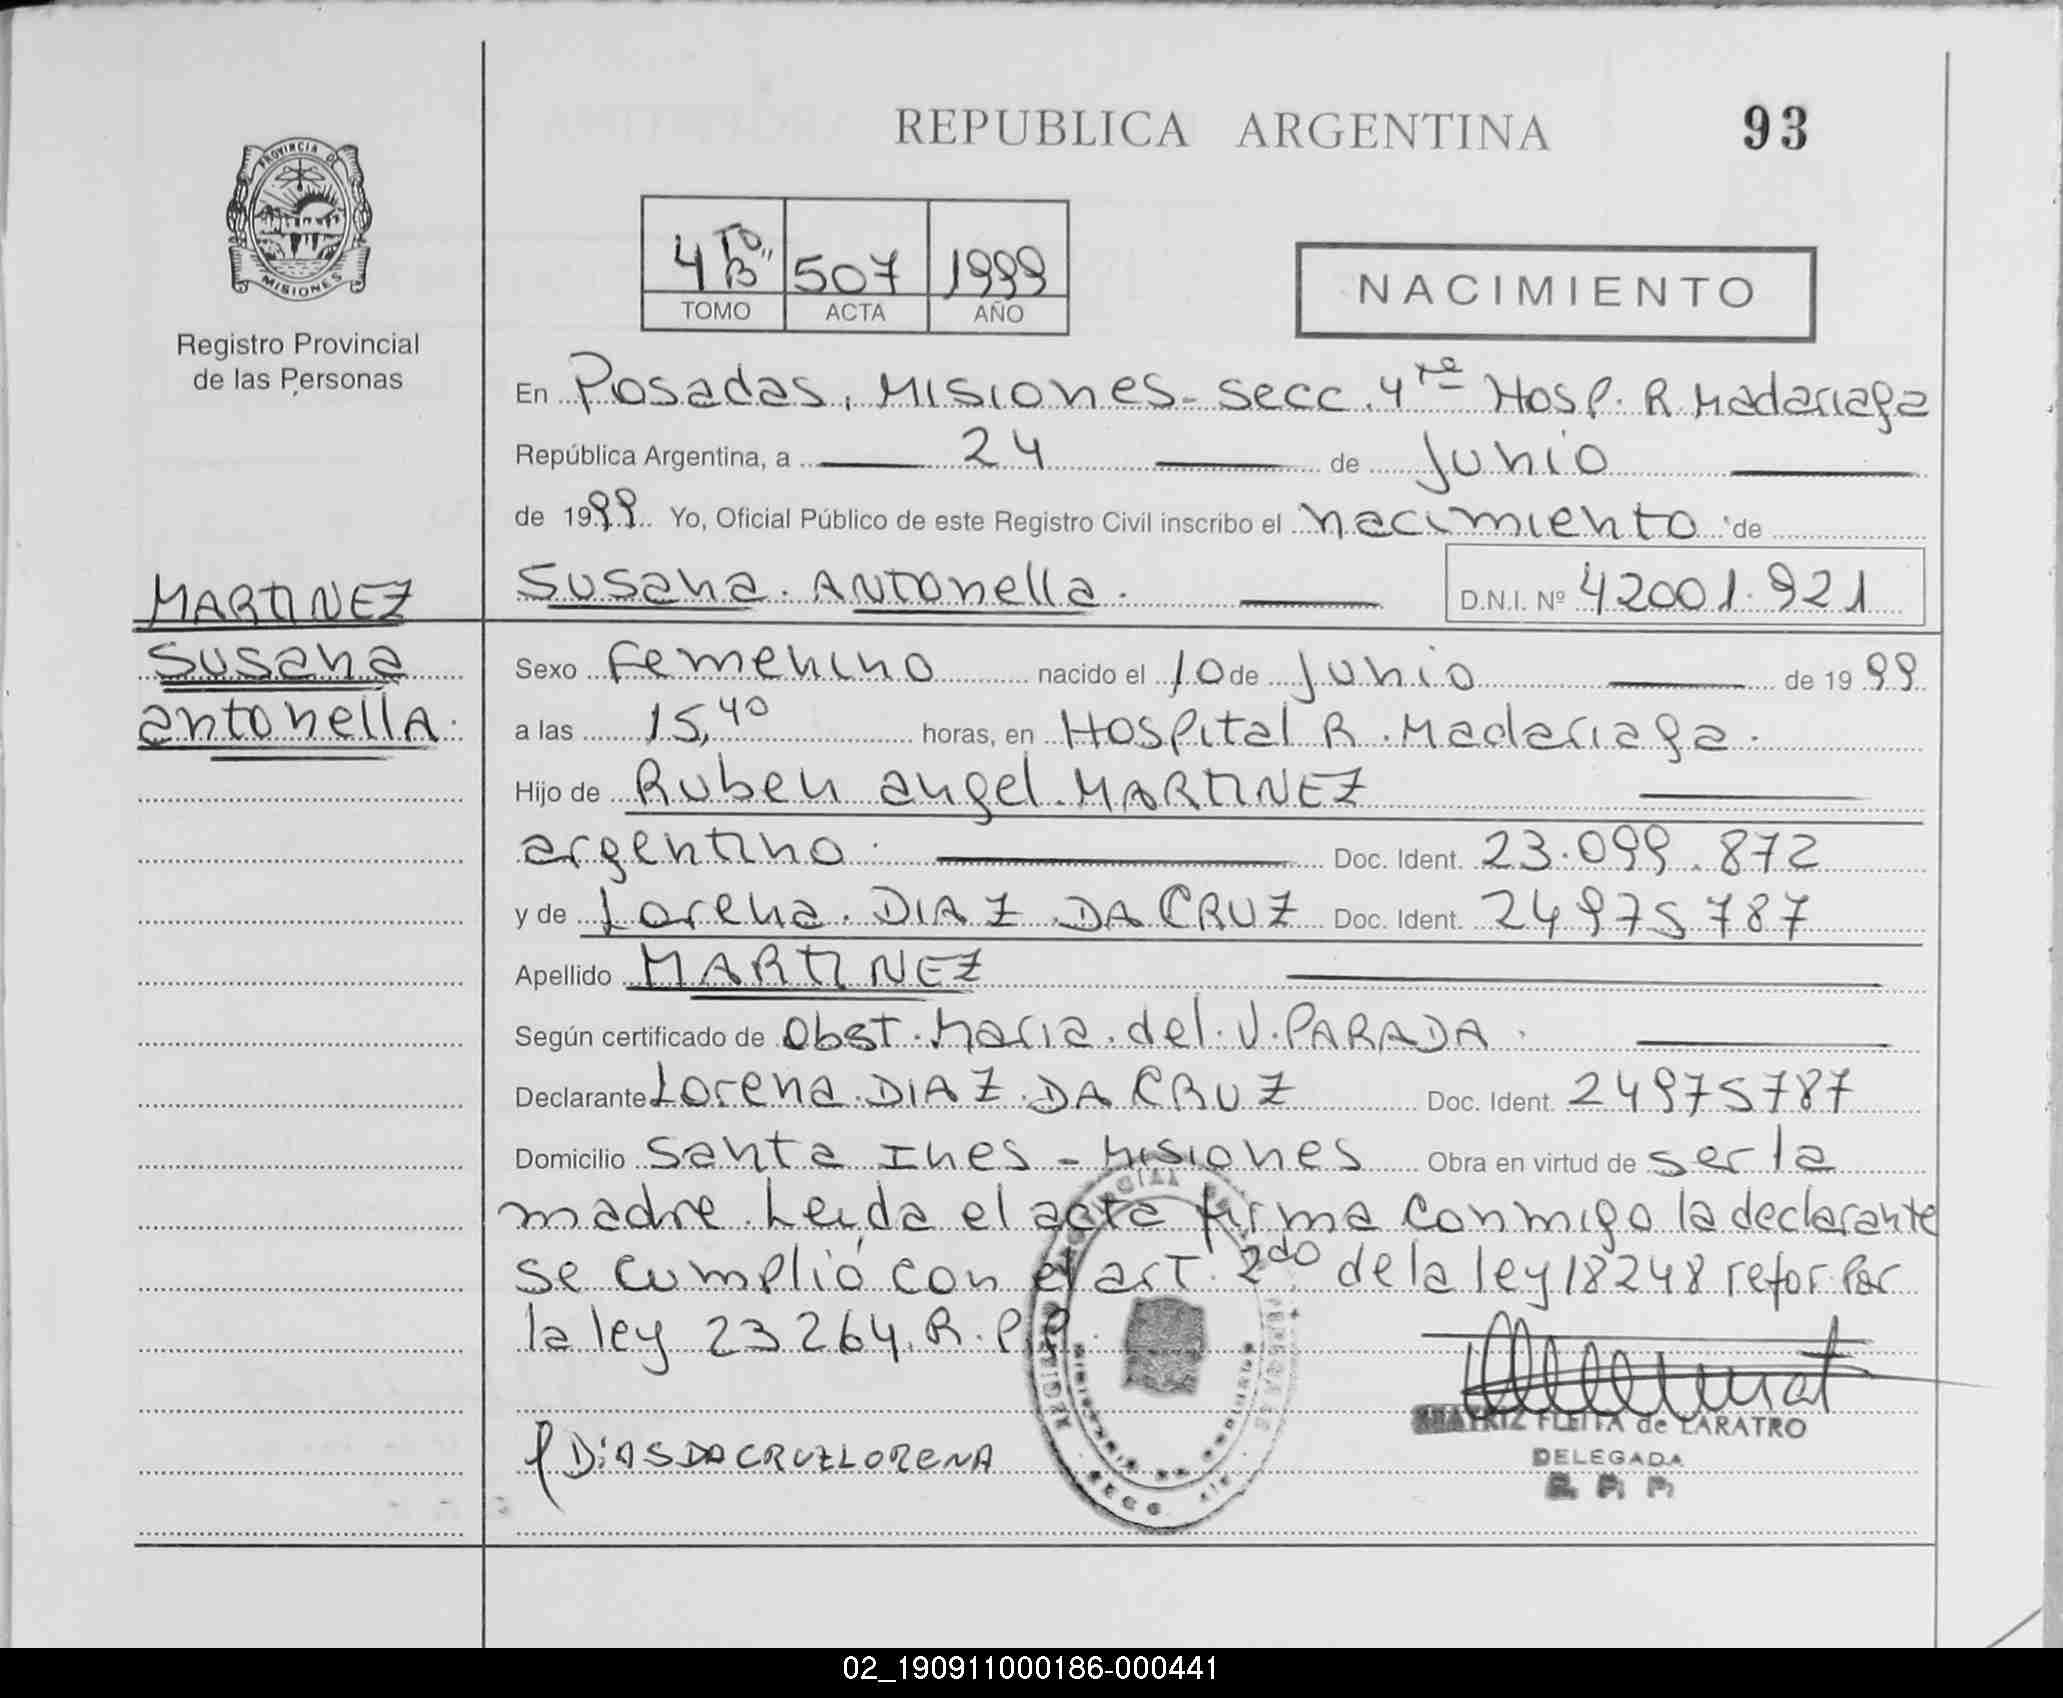 REPUBLICA ARGENTINA
93
PROVINCIA DE
MISIONES
Registro Provincial
de las Personas
4 TO "B" 507 1999
TOMO ACTA AÑO
NACIMIENTO
En Posadas, Misiones - secc. 4ta Hosp. R. Madariaga
República Argentina, a 24 de Junio
de 1999 Yo, Oficial Público de este Registro Civil inscribo el nacimiento de
MARTINEZ
Susana
antonella.
Susana. ANTONella. D.N.I. Nº 42001.921
Sexo Femenino nacido el 10 de Junio de 1999
a las 15,40 horas, en Hospital R. Madariaga.
Hijo de Ruben angel. MARTINEZ
argentino. Doc. Ident. 23.099.872
y de Lorena. DIAZ DA CRUZ Doc. Ident. 24975787
Apellido MARTINEZ
Según certificado de Obst. Maria. del. V. PARADA.
Declarante Lorena. DIAZ. DA CRUZ Doc. Ident. 24975787
Domicilio Santa Ines - Misiones Obra en virtud de ser la
madre. Leida el acta firma conmigo la declarante
se cumplió con el art. 2do de la ley 18248 refor. Por
la ley 23264. R.P.P.
DiAS DA CRUZ LORENA
BEATRIZ FLEITA de LARATRO
DELEGADA
R. P. P.
02_190911000186-000441